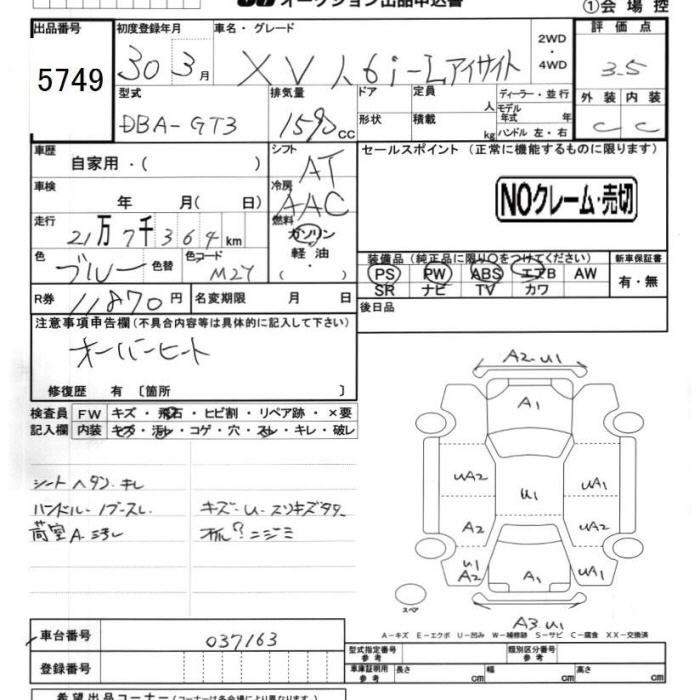 オークション出品申込書
①会場控
出品番号 5749
初度登録年月 30 3月
車名・グレード XV 1.6i-L アイサイト
2WD・4WD
評価点 3.5
外装 C 内装 C
型式 DBA-GT3
排気量 1590 cc
ドア 形状
定員 人 積載 kg
ディーラー・並行
モデル年式 年
ハンドル 左・右
車歴 自家用・( )
シフト AT
車検 年 月( 日)
冷房 AAC
走行 21万7千364km
燃料 ガソリン 軽油 ( ・ )
色 ブルー 色替 色コード M2Y
R券 11870円
名変期限 月 日
セールスポイント (正常に機能するものに限ります)
NOクレーム・売切
装備品 (純正品に限り○をつけてください)
PS PW ABS エアB AW
SR ナビ TV カワ
新車保証書 有・無
後日品
注意事項申告欄(不具合内容等は具体的に記入して下さい)
オーバーヒート
修復歴 有 〔箇所 〕
検査員記入欄
FW キズ・飛石・ヒビ割・リペア跡・×要
内装 キズ・汚レ・コゲ・穴・スレ・キレ・破レ
シート ヘタリ キレ
ハンドル・ノブ スレ
荷室A ヨゴレ
キズ・U・スリキズ タタ
オイル?ニジミ
A2.U1
A1
UA2 U1 UA1
A2 UA2
U1 A2 A1 UA1
スペア
A3.U1
A-キズ E-エクボ U-凹み W-補修跡 S-サビ C-腐食 XX-交換済
車台番号 037163
登録番号
型式指定番号 参考
類別区分番号 参考
車庫証明用 参考 長さ cm 幅 cm 高さ cm
希望出品コーナー(コーナーは各会場により異なります)